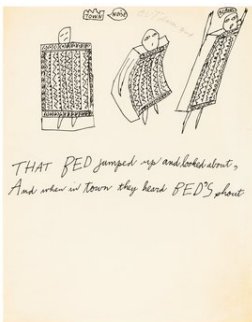 TOWN
THAT BED jumped up and looked about,
And when in town they heard BED'S shout